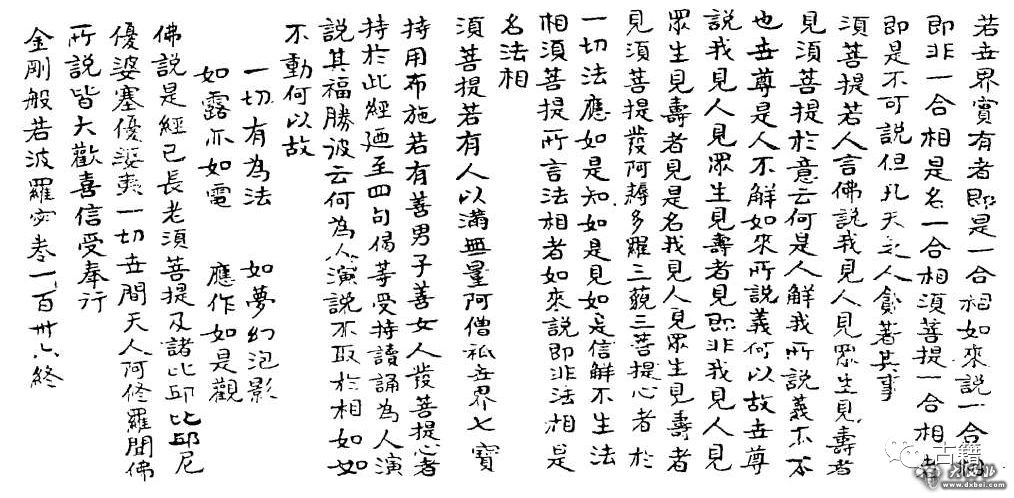 若世界實有者即是一合相如來說一合相
即非一合相是名一合相須菩提一合相者
即是不可說但凡夫之人貪著其事
須菩提若人言佛說我見人見眾生見壽者
見須菩提於意云何是人解我所說義不不
也世尊是人不解如來所說義何以故世尊
說我見人見眾生見壽者見即非我見人見
眾生見壽者見是名我見人見眾生見壽者
見須菩提發阿耨多羅三藐三菩提心者於
一切法應如是知如是見如是信解不生法
相須菩提所言法相者如來說即非法相是
名法相
須菩提若有人以滿無量阿僧祇世界七寶
持用布施若有善男子善女人發菩提心者
持於此經乃至四句偈等受持讀誦為人演
說其福勝彼云何為人演說不取於相如如
不動何以故
一切有為法 如夢幻泡影
如露亦如電 應作如是觀
佛說是經已長老須菩提及諸比丘比丘尼
優婆塞優婆夷一切世間天人阿修羅聞佛
所說皆大歡喜信受奉行
金剛般若波羅蜜卷一百卅六終
古籍
www.dxbei.com